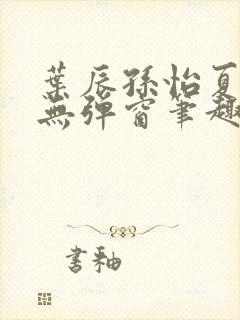 葉辰孫怡夏
無彈窗筆趣
書釉